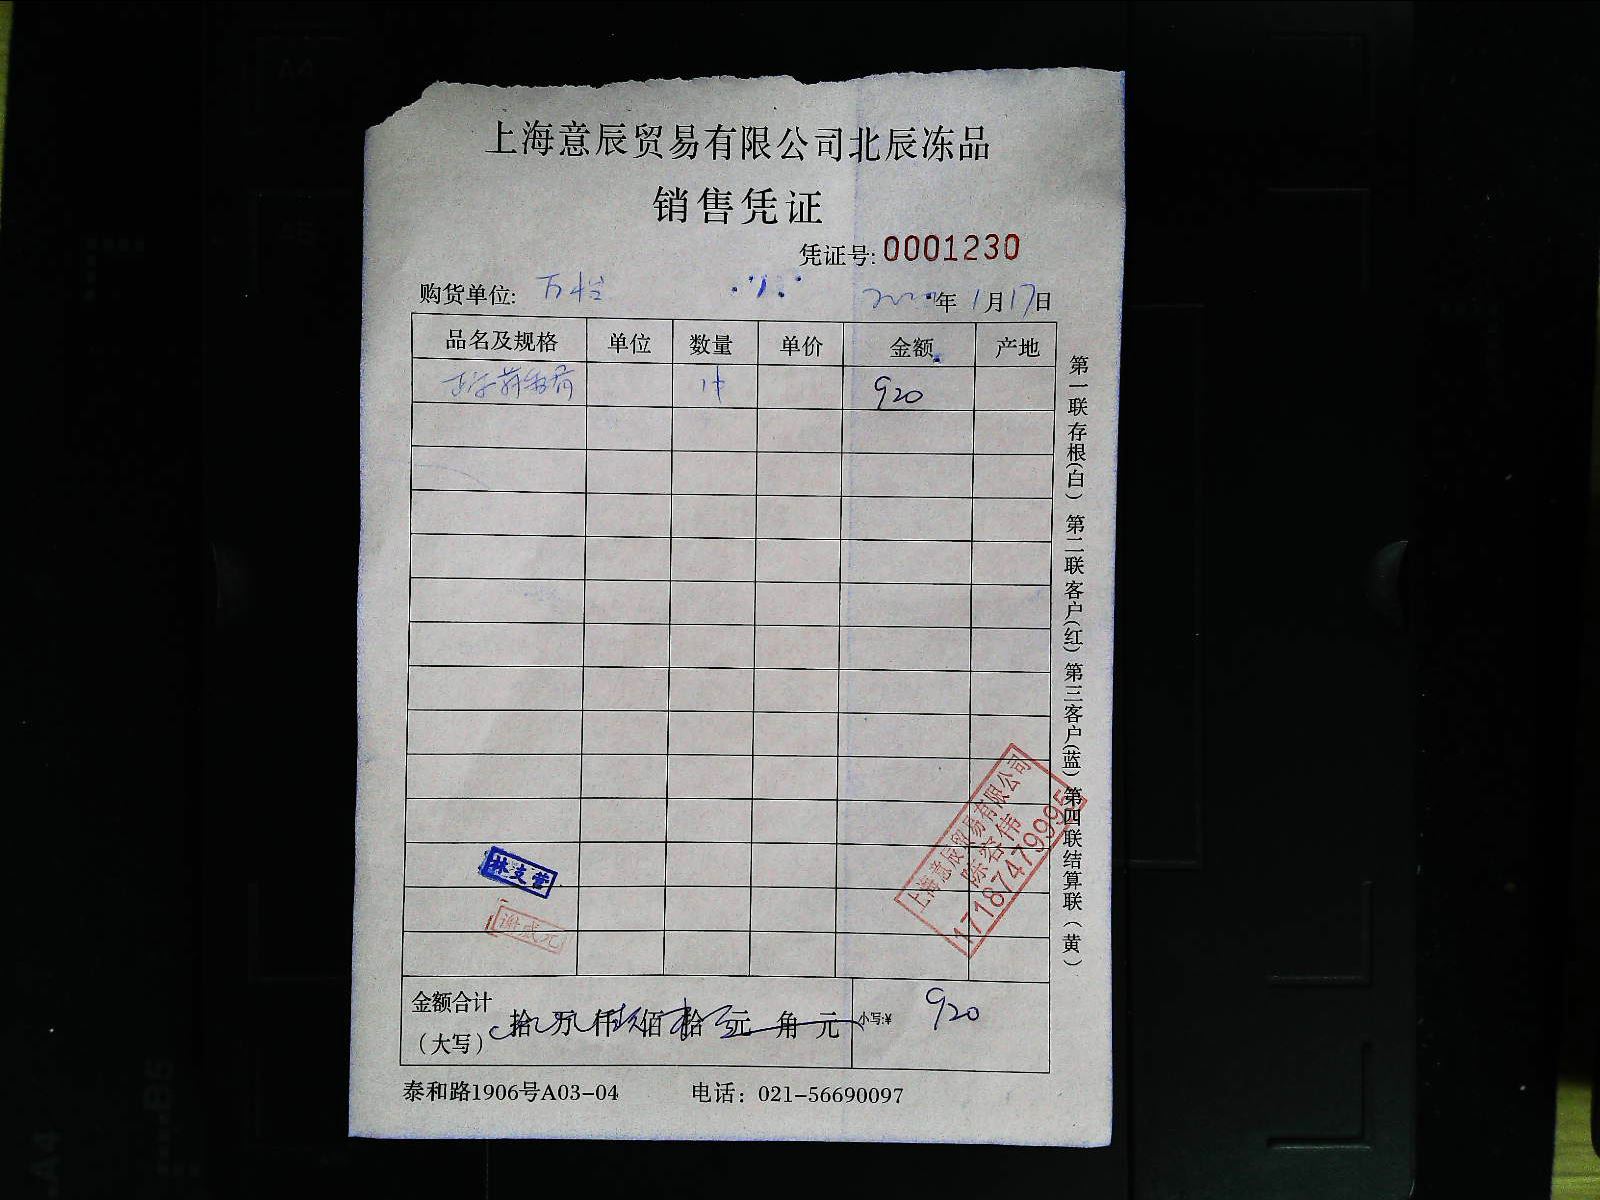 上海意辰贸易有限公司北辰冻品
销售凭证
凭证号: 0001230
购货单位: 万
年 1月17日
品名及规格 单位 数量 单价 金额 产地
920
林支营
谢成元
上海意辰贸易有限公司
陈容伟
17187479995
金额合计
(大写) 拾 万 仟 佰 拾 元 角 元 小写:¥ 920
泰和路1906号A03-04 电话: 021-56690097
第一联存根(白) 第二联客户(红) 第三客户(蓝) 第四联结算联(黄)